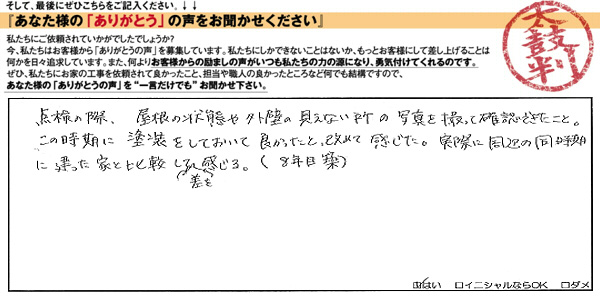 そして、最後にぜひこちらをご記入ください。↓↓
『あなた様の「ありがとう」の声をお聞かせください』
私たちにご依頼されていかがでしたでしょうか?
今、私たちはお客様から「ありがとうの声」を募集しています。私たちにしかできないことはないか、もっとお客様にして差し上げることは
何かを日々追求しています。また、何よりお客様からの励ましの声がいつも私たちの力の源になり、勇気付けてくれるのです。
ぜひ、私たちにお家の工事を依頼されて良かったこと、担当や職人の良かったところなど何でも結構ですので、
あなた様の「ありがとうの声」を“一言だけでも”お聞かせ下さい。
太鼓判
点検の際、屋根の状態や外壁の見えない所の写真を撮って確認できたこと。
この時期に塗装をしておいて良かったと、改めて感じた。実際に周辺の同時期
に建った家と比較し差を感じる。(8年目築)
はい ロイニシャルならOK ロダメ